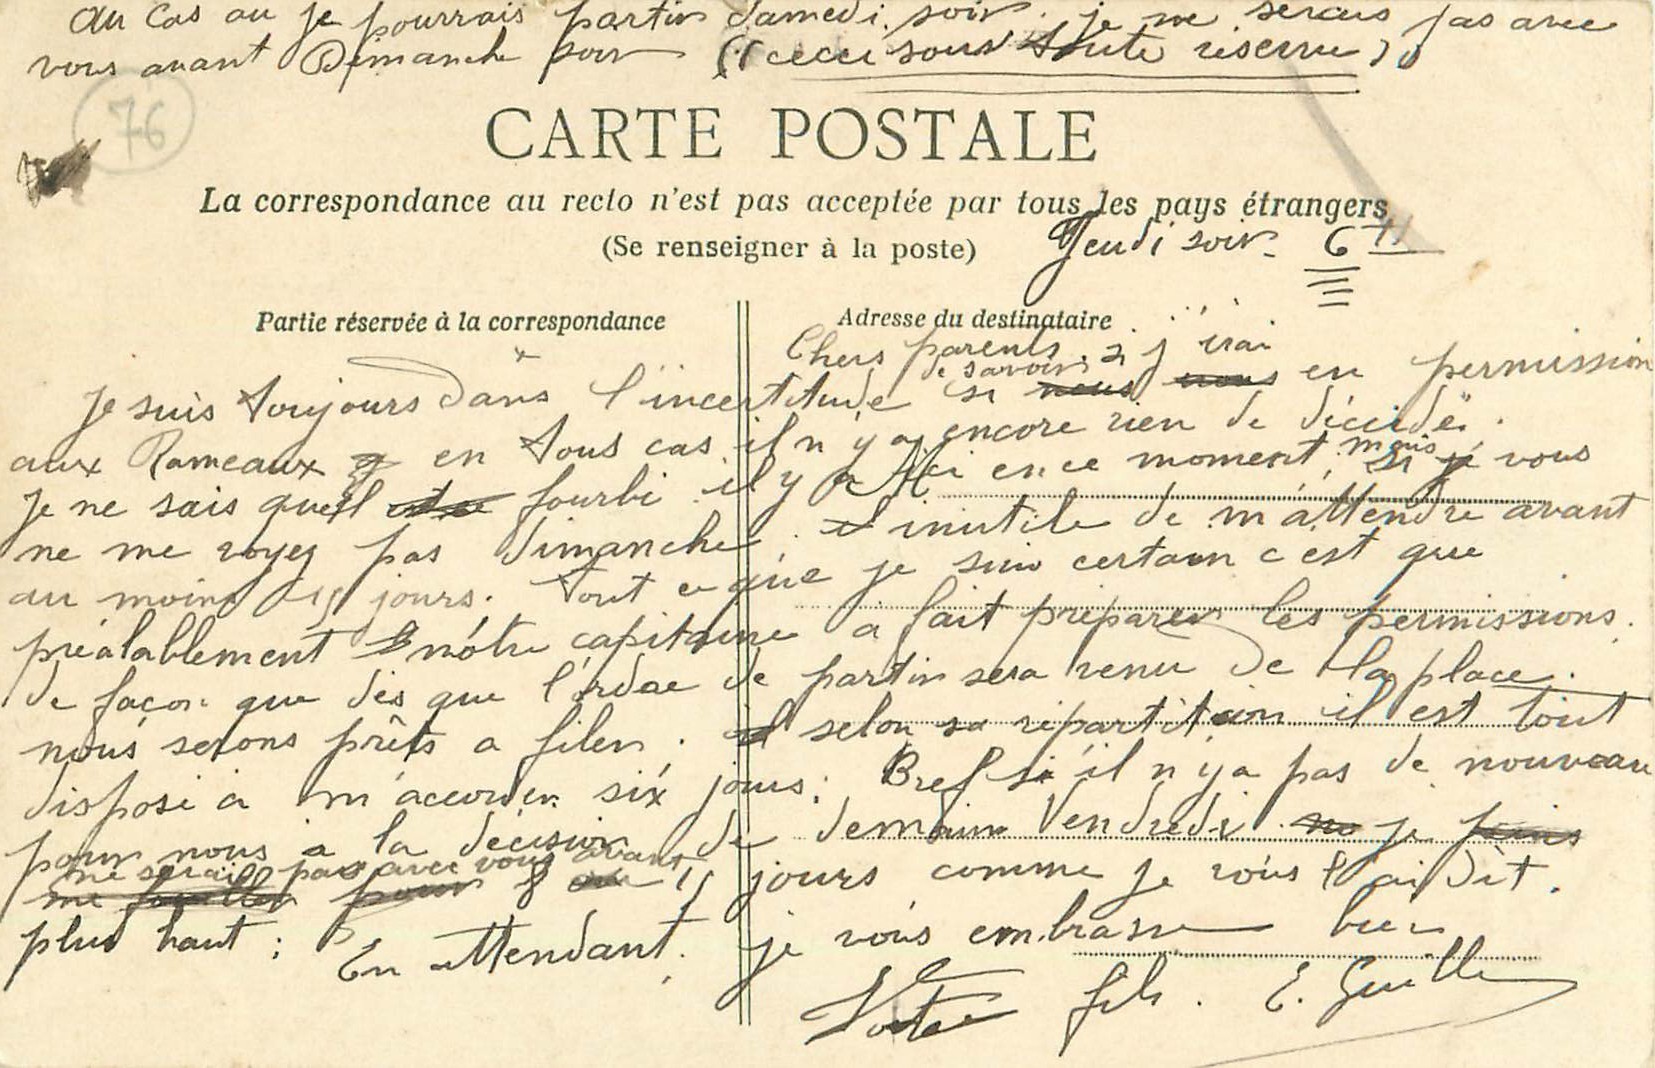 au cas ou je pourrais partir Samedi soir. je ne serais pas avec
vous avant Dimanche soir (ceci sous toute reserve)
76
CARTE POSTALE
La correspondance au recto n'est pas acceptée par tous les pays étrangers
(Se renseigner à la poste)
Jeudi soir - 6 H
Partie réservée à la correspondance
Adresse du destinataire
Chers parents.
de savoir si j'irai
Je suis toujours dans l'incertitude si nous nous en permission
aux Rameaux en tous cas il n'y a encore rien de décidé.
Je ne sais quel fourbi il y a ici en ce moment, mais si je vous
ne me voyez pas dimanche. inutile de m'attendre avant
au moins 15 jours. Tout ce que je suis certain c'est que
préalablement nôtre capitaine a fait préparer les permissions.
de façon que dès que l'ordre de partir sera venu de la place.
nous serons prêts a filer. selon sa répartition il est tout
disposé à m'accorder six jours. Bref si il n'y a pas de nouveau
pour nous à la décision de demain Vendredi je
ne serais pas avec vous avant
15 jours comme je vous l'ai dit.
plus haut ; En attendant. je vous embrasse bien
Votre fils. E. Guille